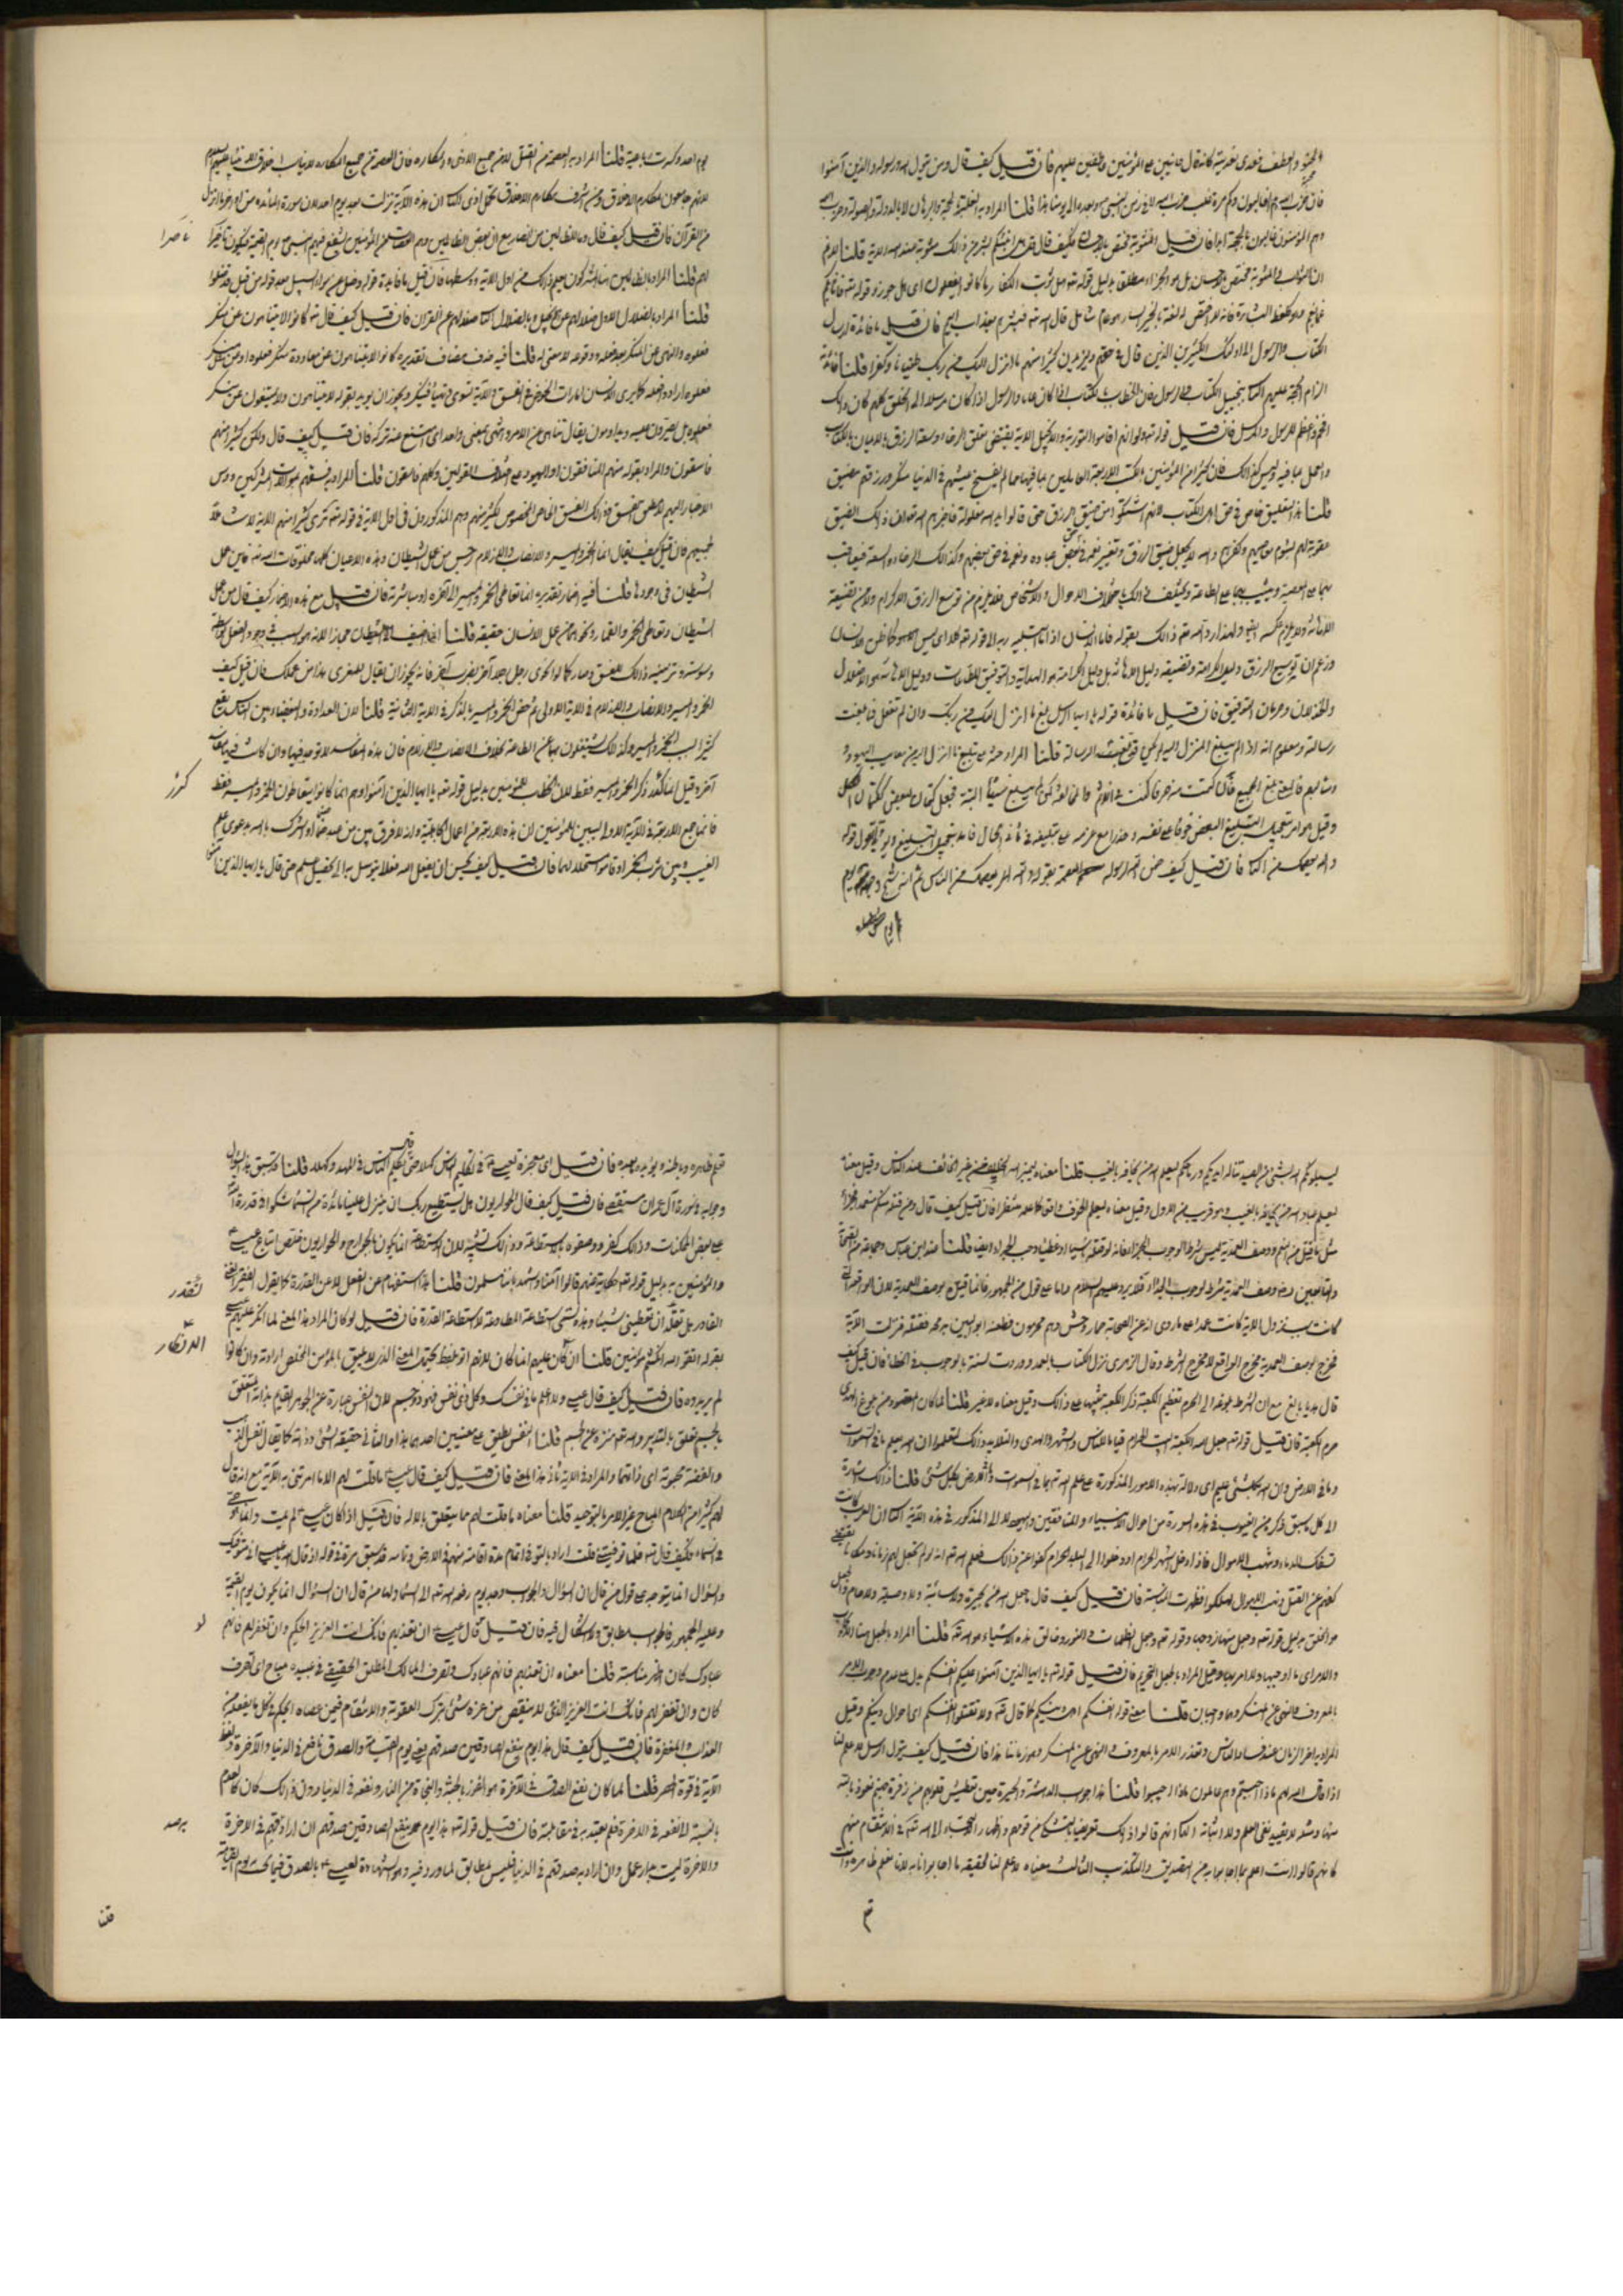 والحنو والعطف فعدى تعديته كانه قال حانين على المؤمنين وعطفين عليهم فان قيل كيف قال ومن يتول الله ورسوله والذين آمنوا
فان حزب الله هم الغالبون وكم مرة غلب حزب الله في زمن النبي وبعده الى يومنا هذا قلنا المراد به الغلبة بالحجة والبرهان لا بالدولة والصولة وحزب الله
وهم المؤمنون غالبون بالحجة ابدا فان قيل المثوبة تختص بالاحسان فكيف قال قل هل انبئكم بشر من ذلك مثوبة عند الله الآية قلنا لا نسلم
ان الثواب والمثوبة مختص بالاحسان بل هو الجزاء مطلقا بدليل قوله تع هل ثوب الكفار ما كانوا يفعلون اى هل جوزوا وقوله تع فاثابكم
غما بغم وهو كلفظ البشارة فانه لا يختص لغة بالخبر السار بل هو عام شامل قال الله تع فبشرهم بعذاب اليم فان قيل ما فائدة ارسال
الكتاب والرسول الى اولئك الكثيرين الذين قال فى حقهم وليزيدن كثيرا منهم ما انزل اليك من ربك طغيانا وكفرا قلنا فائدته
الزام الحجة عليهم الثانى تبجيل الكتاب والرسول فان الخطاب بالكتاب اذا كان عاما والرسول اذا كان مرسلا الى الخلق كلهم كان ذلك
افخم واعظم للرسول والمرسل فان قيل قوله تع ولو انهم اقاموا التورية والانجيل الآية يقتضى تعلق الرخاء وسعة الرزق بالايمان بالكتاب
والعمل بما فيه وليس كذلك فان كثيرا من المؤمنين بالكتب الاربعة العاملين بما فيها مما لم ينسخ عيشهم فى الدنيا منكر ورزقهم مضيق
قلنا هذا التعليق خاص فى حق اهل الكتاب لانهم اشتكوا من ضيق الرزق حتى قالوا يد الله مغلولة فاخبرهم الله تعالى ان ذلك الضيق
عقوبة لهم بشوم معاصيهم وكفرهم والله تع يجعل ضيق الرزق وتقتيره نعمة فى حق بعض عباده ونقمة فى حق بعضهم وكذلك الرخاء والسعة فيعاقب
بهما على المعصية ويثيب بهما على الطاعة ويختلف ذلك باختلاف الاحوال والاشخاص فلا يلزم من توسيع الرزق الاكرام ولا من تضييقه
الاهانة ولا يلزم عكسه ايضا ولهذا رد الله تع ذلك بقوله فاما الانسان اذا ما ابتليه ربه الى قوله تع كلا اى ليس الامر كما ظن الانسان
وزعم ان توسيع الرزق دليل الكرامة وتضييقه دليل الاهانة بل دليل الكرامة هو الهداية والتوفيق للطاعات ودليل الاهانة هو الاضلال
والخذلان وحرمان التوفيق فان قيل ما فائدة قوله يا ايها الرسول بلغ ما انزل اليك من ربك وان لم تفعل فما بلغت
رسالته ومعلوم انه اذا لم يبلغ المنزل اليه لم يكن قد بلغت الرسالة قلنا المراد حثه على تبليغ ما انزل اليه من معايب اليهود
ومثالبهم فالمعنى بلغ الجميع فان كتمت منه حرفا كنت فى الاثم والمخالفة كمن لم يبلغ شيئا البتة فجعل كتمان البعض ككتمان الكل
وقيل هو امر بتعجيل التبليغ
والله يعصمك من الناس فان قيل كيف ضمن تع لرسوله العصمة بقوله والله يعصمك من الناس ثم انه شج وجهه يوم
يوم احد وكسرت رباعيته قلنا المراد به العصمة من القتل لا من جميع الاذى والمكاره فان العصمة من جميع المكاره لا يناسب اخلاق الانبياء عليهم السلام
لانهم جامعون لمكارم الاخلاق ومن اشرف مكارم الاخلاق تحمل الاذى الثانى ان هذه الآية نزلت بعد يوم احد لان سورة المائدة من آخر ما نزل
من القرآن فان قيل كيف قال وما للظالمين من انصار مع ان بعض الظالمين وهم العصاة من المؤمنين يشفع فيهم النبى يوم القيمة فيكون ناصرا
ناصرا
لهم قلنا المراد بالظالمين هنا المشركون يعلم ذلك من اول الآية ووسطها فان قيل ما فائدة قوله وضلوا عن سواء السبيل بعد قوله من قبل قد ضلوا
قلنا المراد بالضلال الاول ضلالهم عن الانجيل وبالضلال الثانى ضلالهم عن القرآن فان قيل كيف قال تع كانوا لا يتناهون عن منكر
فعلوه والنهى عن المنكر بعد فعله ووقوعه لا معنى له قلنا فيه حذف مضاف تقديره كانوا لا يتناهون عن معاودة منكر فعلوه او عن مثل منكر
فعلوه او عن منكر ارادوا فعله كما يرى الانسان امارات الخوض فى الفسق وآلاته تسوى وتهيأ فينكر ويجوز ان يريد بقوله لا يتناهون ولا يمتنعون عن منكر
فعلوه بل يصرون عليه ويداومون يقال تناهى عن الامر وانتهى بمعنى واحد اى امتنع عنه وتركه فان قيل كيف قال ولكن كثيرا منهم
فاسقون والمراد بقوله منهم المنافقون او اليهود على اختلاف القولين وكلهم فاسقون قلنا المراد به فسقهم بموالات المشركين ودس
الاخبار اليهم لا مطلق الفسق وذلك الفسق الخاص مخصوص بكثير منهم وهم المذكورون فى اول الآية فى قوله تع ترى كثيرا منهم الآية
لجميعهم فان قيل كيف قال انما الخمر والميسر والانصاب والازلام رجس من عمل الشيطان وهذه الاعيان كلها مخلوقات الله تع فاين عمل
الشيطان فى وجودها قلنا فيه اضمار تقديره انما تعاطى الخمر والميسر الى آخره او مباشرته فان قيل مع هذا الاضمار كيف قال من عمل
الشيطان وتعاطى الخمر والقمار ونحوهما من عمل الانسان حقيقة قلنا انما اضيف الى الشيطان مجازا لانه هو السبب فى وجود الفعل بواسطة
وسوسته وتزيينه ذلك للفسق وصار كما لو اغرى رجل رجلا آخر بضرب آخر فانه يجوز ان يقال للمغرى هذا من عملك فان قيل كيف
الخمر والميسر والانصاب والازلام فى الآية الاولى ثم خص الخمر والميسر بالذكر فى الآية الثانية قلنا لان العداوة والبغضاء بين الناس تقع
كثيرا بسبب الخمر والميسر وكذلك يشتغلون بهما عن الطاعة بخلاف الانصاب والازلام فان هذه المفاسد لا توجد فيها وان كانت فيها مفاسد
اخر وقيل انما كرر ذكر الخمر والميسر فقط لان الخطاب للمؤمنين بدليل قوله تع يا ايها الذين آمنوا وهم انما كانوا يتعاطون الخمر والميسر فقط
كرر
وانما جمع الاربعة فى الآية الاولى ليبين للمؤمنين ان هذه الاربعة من اعمال الجاهلية وانه لا فرق بين من عبد صنما او اشرك بالله بدعوى علم
الغيب وبين من شرب الخمر او قامر مستحلا لهما فان قيل كيف يحسن ان يفعل الله فعلا يتوسل به الى تحصيل علم حتى قال يا ايها الذين آمنوا
ليبلونكم الله بشىء من الصيد تناله ايديكم ورماحكم ليعلم الله من يخافه بالغيب قلنا معناه ليميز الله الخائف من غير الخائف عند الناس وقيل معناه
ليعلم عباد الله من يخافه بالغيب وهو قريب من الاول وقيل معناه ليعلم الخوف واقعا كما علمه منتظرا فان قيل كيف قال ومن قتله منكم متعمدا فجزاء
مثل ما قتل من النعم ووصف العمدية ليس شرطا لوجوب الجزاء فانه لو قتله ناسيا او مخطئا وجب الجزاء ايضا قلنا عند ابن عباس وجماعة من الصحابة
والتابعين رض وصف العمدية شرط لوجوب الجزاء فلا يرد عليهم السؤال واما على قول الجمهور فانما قيده بوصف العمدية لان الواقعة التى
كانت سبب نزول الآية كانت عمدا على ما روى انه عن الصحابة حمار وحش وهم محرمون فطعنه ابو اليسر برمحه فقتله فنزلت الآية
فخرج بوصف العمدية مخرج الواقع لا مخرج الشرط وقال الزهرى نزل الكتاب بالعمد ووردت السنة بالوجوب فى الخطا فان قيل كيف
قال هديا بالغ الكعبة مع ان الشرط بلوغه الى الحرم
حرم الكعبة فان قيل قوله تع جعل الله الكعبة البيت الحرام قياما للناس والشهر الحرام والهدى والقلايد ذلك لتعلموا ان الله يعلم ما فى السموات
وما فى الارض وان الله بكل شىء عليم اى دلالة بهذه الامور المذكورة على علم الله تع بما فى السموات وما فى الارض وبكل شىء قلنا ذلك اشارة
الى كل ما سبق ذكره من الغيوب فى هذه السورة من احوال الانبياء والمنافقين واليهود لا الى المذكور فى هذه الآية الثانى ان العرب كانت
تسفك الدماء وتنهب الاموال فاذا دخل الشهر الحرام او دخلوا الى البلد الحرام كفوا عن ذلك فعلم الله تع انه لو لم يجعل لهم زمانا ومكانا يقتضى
كفهم عن القتل ونهب الاموال لهلكوا فظهرت المناسبة فان قيل كيف قال ما جعل الله من بحيرة ولا سائبة ولا وصيلة ولا حام والجعل
هو الخلق بدليل قوله تع وجعل منها زوجها وقوله تع وجعل الظلمات والنور وخالق هذه الاشياء هو الله تع قلنا المراد بالجعل هنا الايجاب
والامر اى ما اوجبها ولا امر بها وقيل المراد بالجعل التحريم فان قيل قوله تع يا ايها الذين آمنوا عليكم انفسكم يدل على عدم وجوب الامر
بالمعروف والنهى عن المنكر وهما واجبان قلنا معنى قوله انفسكم اى اهل دينكم كما قال تع ولا تقتلوا انفسكم اى اهل دينكم وقيل
المراد به آخر الزمان عند فساد الناس وتعذر الامر بالمعروف والنهى عن المنكر وهو زماننا هذا فان قيل كيف يقول الرسل لا علم لنا
اذا قال الله لهم ماذا اجبتم وهم عالمون بماذا اجيبوا قلنا هذا جواب الدهشة والحيرة حين تطيش قلوبهم من زفرة جهنم نعوذ بالله
منها ومثله لا يفيد نفى العلم ولا اثباته الثانى انهم قالوا ذلك تعريضا بالتشكى من قومهم واظهار الالتجاء الى الله تع فى الانتقام منهم
كانهم قالوا انت اعلم بما اجابوا به من التصديق والتكذيب الثالث معناه لا علم لنا بحقيقة ما اجابوا به لانا نعلم ظاهره وانت
تعلم ظاهره وباطنه ويؤيده ما بعده فان قيل اى معجزة لعيسى ع فى تكليم الناس كهلا حتى قال تكلم الناس فى المهد وكهلا قلنا قد سبق هذا السؤال
وجوابه فى سورة آل عمران مستقصى فان قيل كيف قال الحواريون هل يستطيع ربك ان ينزل علينا مائدة من السماء شكوا فى قدرة الله تع
على بعض الممكنات وذلك كفر ووصفوه بالاستطاعة وذلك تشبيه لان الاستطاعة انما تكون بالجوارح والحواريون خلص اتباع عيسى ع
والمؤمنين به بدليل قوله تع حكاية عنهم قالوا آمنا واشهد باننا مسلمون قلنا هذا استفهام عن الفعل لا عن القدرة كما يقول الفقير للغنى
لتقدر
القادر هل تقدر ان تعطينى شيئا وهذه تسمى استطاعة المطاوعة لا استطاعة القدرة فان قيل لو كان المراد هذا المعنى لما انكر عليهم عيسى ع
الانكار
بقوله اتقوا الله ان كنتم مؤمنين قلنا انكاره عليهم انما كان لانهم اتوا بلفظ يحتمل المعنى الذى لا يليق بالمؤمن المخلص ارادته وان كانوا
لم يريدوه فان قيل كيف قال عيسى ولا اعلم ما فى نفسك وكل ذى نفس فهو ذو جسم لان النفس عبارة عن الجوهر القايم بذاته المتعلق
بالجسم تعلق التدبير والله تع منزه عن الجسم قلنا النفس يطلق على معنيين احدهما هذا والثانى حقيقة الشىء وذاته كما يقال نفس الذهب
والفضة محبوبة اى ذاتهما والمراد فى الآية هذا المعنى فان قيل كيف قال عيسى ع ما قلت لهم الا ما امرتنى به الآية مع انه قال
لهم كثيرا من الكلام المباح غير الامر بالتوحيد قلنا معناه ما قلت لهم مما يتعلق بالاله فان قيل اذا كان عيسى ع لم يمت وانما هو حى
فى السماء فكيف قال تع فلما توفيتنى قلنا اراد بالتوفى اتمام مدة اقامته منهم فى الارض وتمامه قد سبق مرة فى قوله اذ قال الله يا عيسى انى متوفيك
والسؤال انما يتوجه على قول من قال ان السؤال والجواب وجد يوم رفعه الله تع الى السماء واما من قال ان السؤال انما يكون يوم القيمة
وعليه الجمهور فالجواب مطابق ولا اشكال فيه فان قيل قال عيسى ع ان تعذبهم فانك انت العزيز الحكيم وان تغفر لهم فانهم
لو
عبادك كان اظهر مناسبة قلنا معناه ان تعذبهم فانهم عبادك وتصرف المالك المطلق الحقيقى فى عبيده مباح اى تصرف
كان وان تغفر لهم فانك انت العزيز الذى لا ينقص من عزه شىء بترك العقوبة والانتقام فيمن عصاه الحكيم فى كل ما يفعله من
العذاب والمغفرة فان قيل كيف قال هذا يوم ينفع الصادقين صدقهم يعنى يوم القيمة والصدق نافع فى الدنيا والآخرة ولفظ
الآية فى قوة الحصر قلنا لما كان نفع الصدق فى الآخرة هو الفوز بالجنة والنجاة من النار ونفعه فى الدنيا دون ذلك كان كالعدم
بالنسبة الى نفعه فى الآخرة فلم يعتد به فى مقابلته فان قيل قوله تع هذا يوم ينفع الصادقين صدقهم ان اراد صدقهم فى الآخرة
والآخرة ليست بدار عمل وان اراد به صدقهم فى الدنيا فليس بمطابق لما ورد فيه وهو الشهادة لعيسى ع بالصدق فيما يجيب به يوم القيامة
قلنا